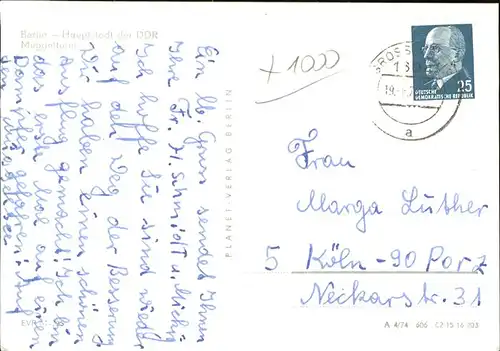 Berlin – Hauptstadt der DDR
Müggelturm
Ein lb. Gruss sendet Ihnen
Ihre Fr. H. Schmidt u. Mich
Ich hoffe Sie sind wieder
auf den Weg der Besserung
Wir haben einen schönen
Ausflug gemacht! Ich bin
das erste Mal auf einen
Dampfer gefahren. Auf
+1000
PLANET-VERLAG BERLIN
GROSS
19.
a
25
DEUTSCHE
DEMOKRATISCHE REPUBLIK
Frau
Marga Luther
5 Köln-90 Porz
Neckarstr. 31
EVP
A 4/74 606 C2 15 16 203